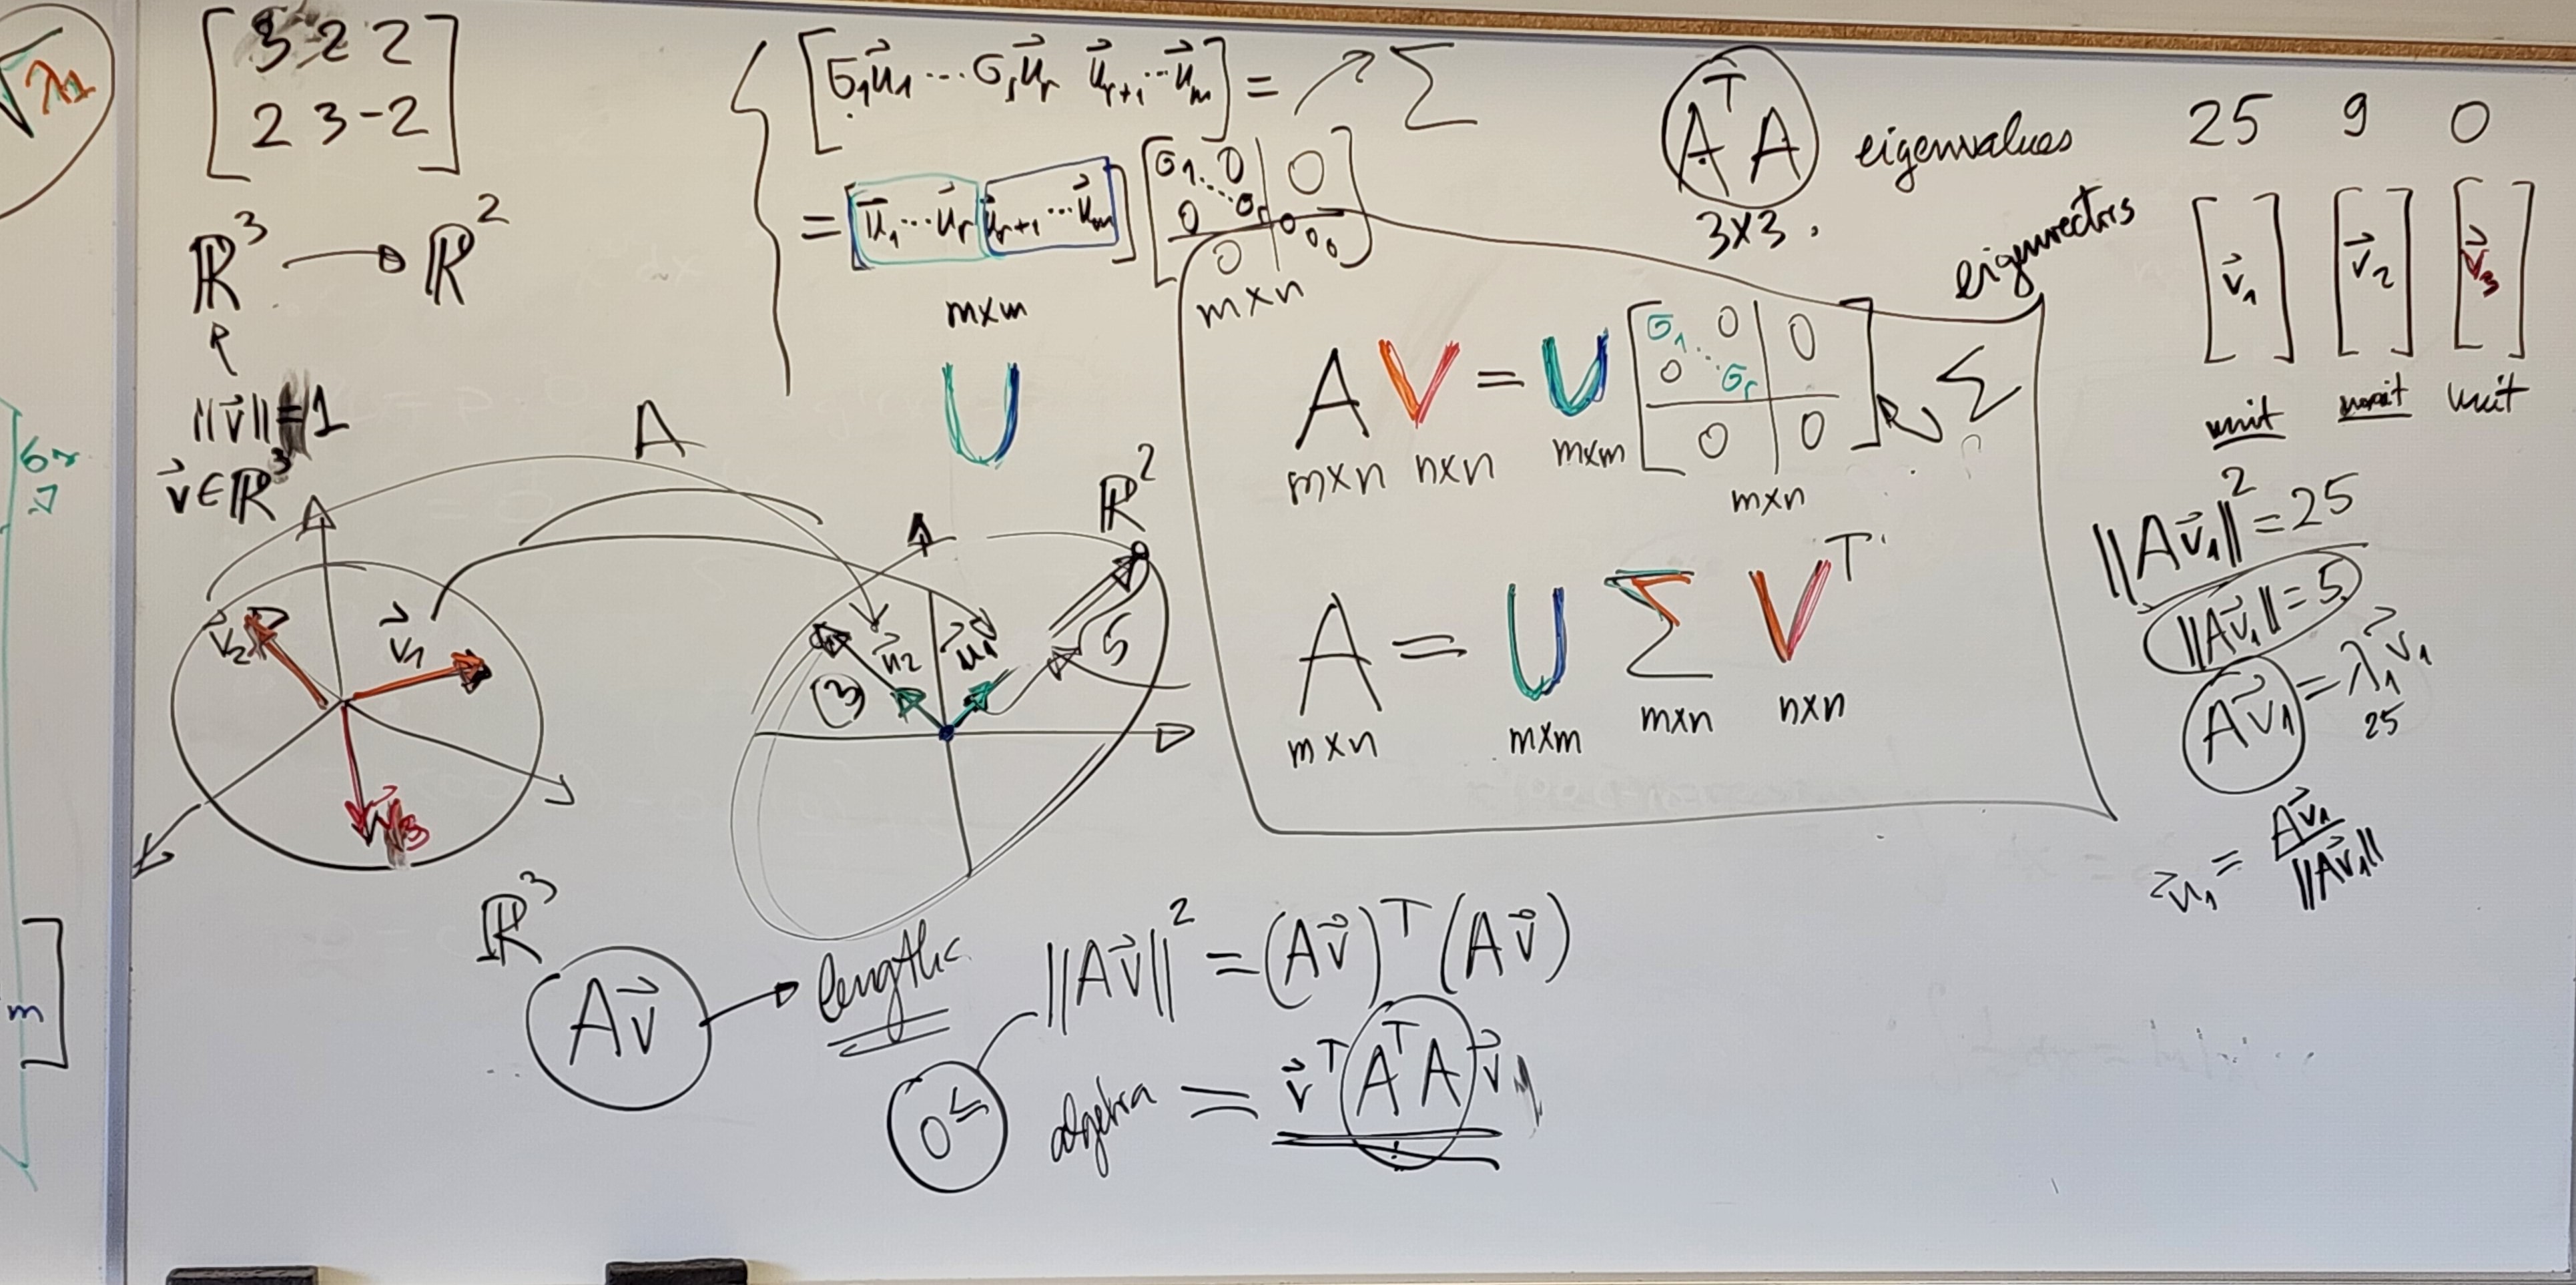 √λ1
[3 2 2
2 3 -2]
ℝ³ → ℝ²
||v⃗|| = 1
v⃗ ∈ ℝ³
[σ1u⃗1 ... σru⃗r u⃗r+1 ... u⃗m] = ↗ Σ
= [u⃗1 ... u⃗r u⃗r+1 ... u⃗m] [σ1 0 | 0
0 σr | 0
0 | 0]
m×m
m×n
U
A^T A eigenvalues 25 9 0
3×3
eigenvectors [v⃗1] [v⃗2] [v⃗3]
unit unit unit
A V = U [σ1 0 | 0
0 σr |
0 | 0] Σ
m×n n×n m×m m×n
A = U Σ V^T
m×n m×m m×n n×n
||Av⃗1||² = 25
||Av⃗1|| = 5
Av⃗1 = λ1 v⃗1
25
u⃗1 = Av⃗1 / ||Av⃗1||
A
v⃗2 v⃗1
v⃗3
ℝ³
ℝ²
u⃗2 u⃗1
3 5
Av⃗ → lengths
||Av⃗||² = (Av⃗)^T (Av⃗)
0 ≤ algebra = v⃗^T A^T A v⃗
σr
m]